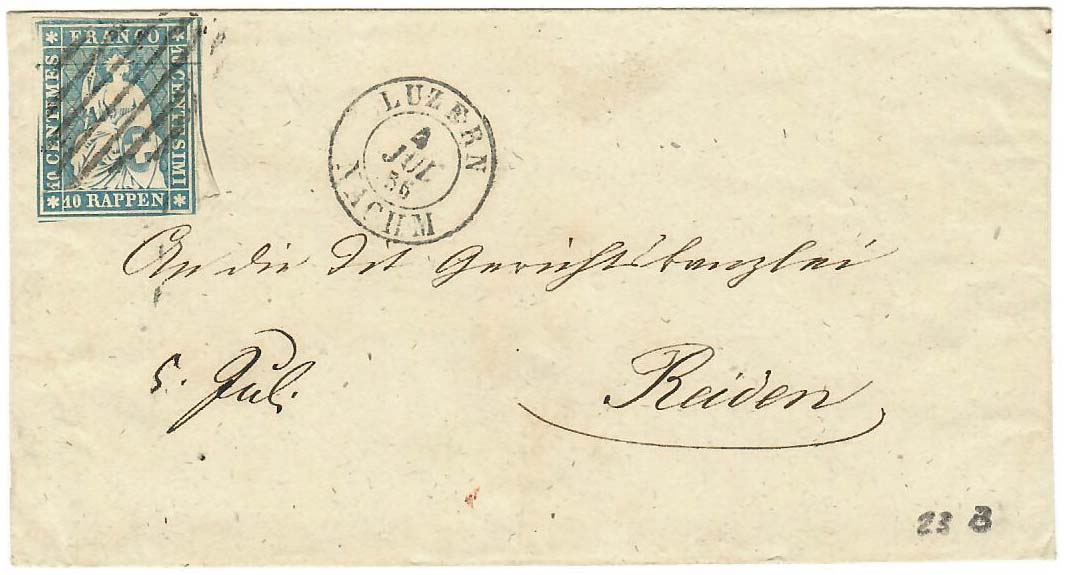 * FRANCO *
10 CENTIMES
10 CENTESIMI
* 10 RAPPEN *
LUZERN
4
JUL
56
NACHM
An die Tit Gerichtskanzlei
5. Juli
Reiden
23 B